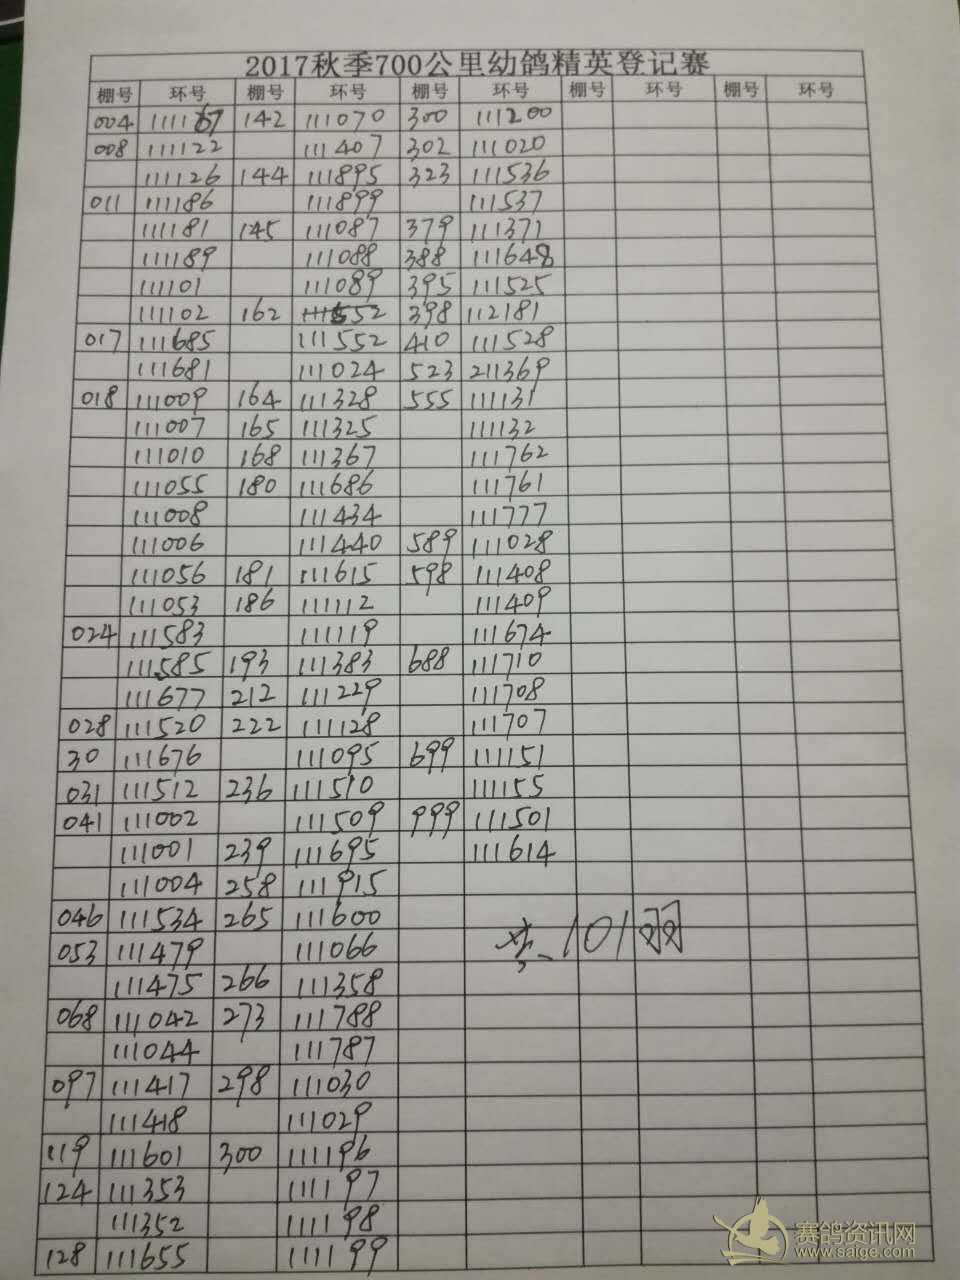 2017秋季700公里幼鸽精英登记赛
棚号 环号 棚号 环号 棚号 环号 棚号 环号 棚号 环号
004 111167 142 111070 300 111200
008 111122 111407 302 111020
111126 144 111895 323 111536
011 111186 111899 111537
111181 145 111087 379 111371
111189 111088 388 111648
111101 111089 395 111525
111102 162 398 112181
017 111685 111552 410 111528
111681 111024 523 211369
018 111009 164 111328 555 111131
111007 165 111325 111132
111010 168 111367 111762
111055 180 111686 111761
111008 111434 111777
111006 111440 589 111028
111056 181 111615 598 111408
111053 186 111112 111409
024 111583 111119 111674
111585 193 111383 688 111710
111677 212 111229 111708
028 111520 222 111128 111707
30 111676 111095 699 111151
031 111512 236 111510 111155
041 111002 111509 999 111501
111001 239 111695 111614
111004 258 111915
046 111534 265 111600
053 111479 111066
共101羽
111475 266 111358
068 111042 273 111788
111044 111787
097 111417 298 111030
111418 111029
119 111601 300 111196
124 111353 111197
111352 111198
128 111655 111199
赛鸽资讯网
www.saige.com